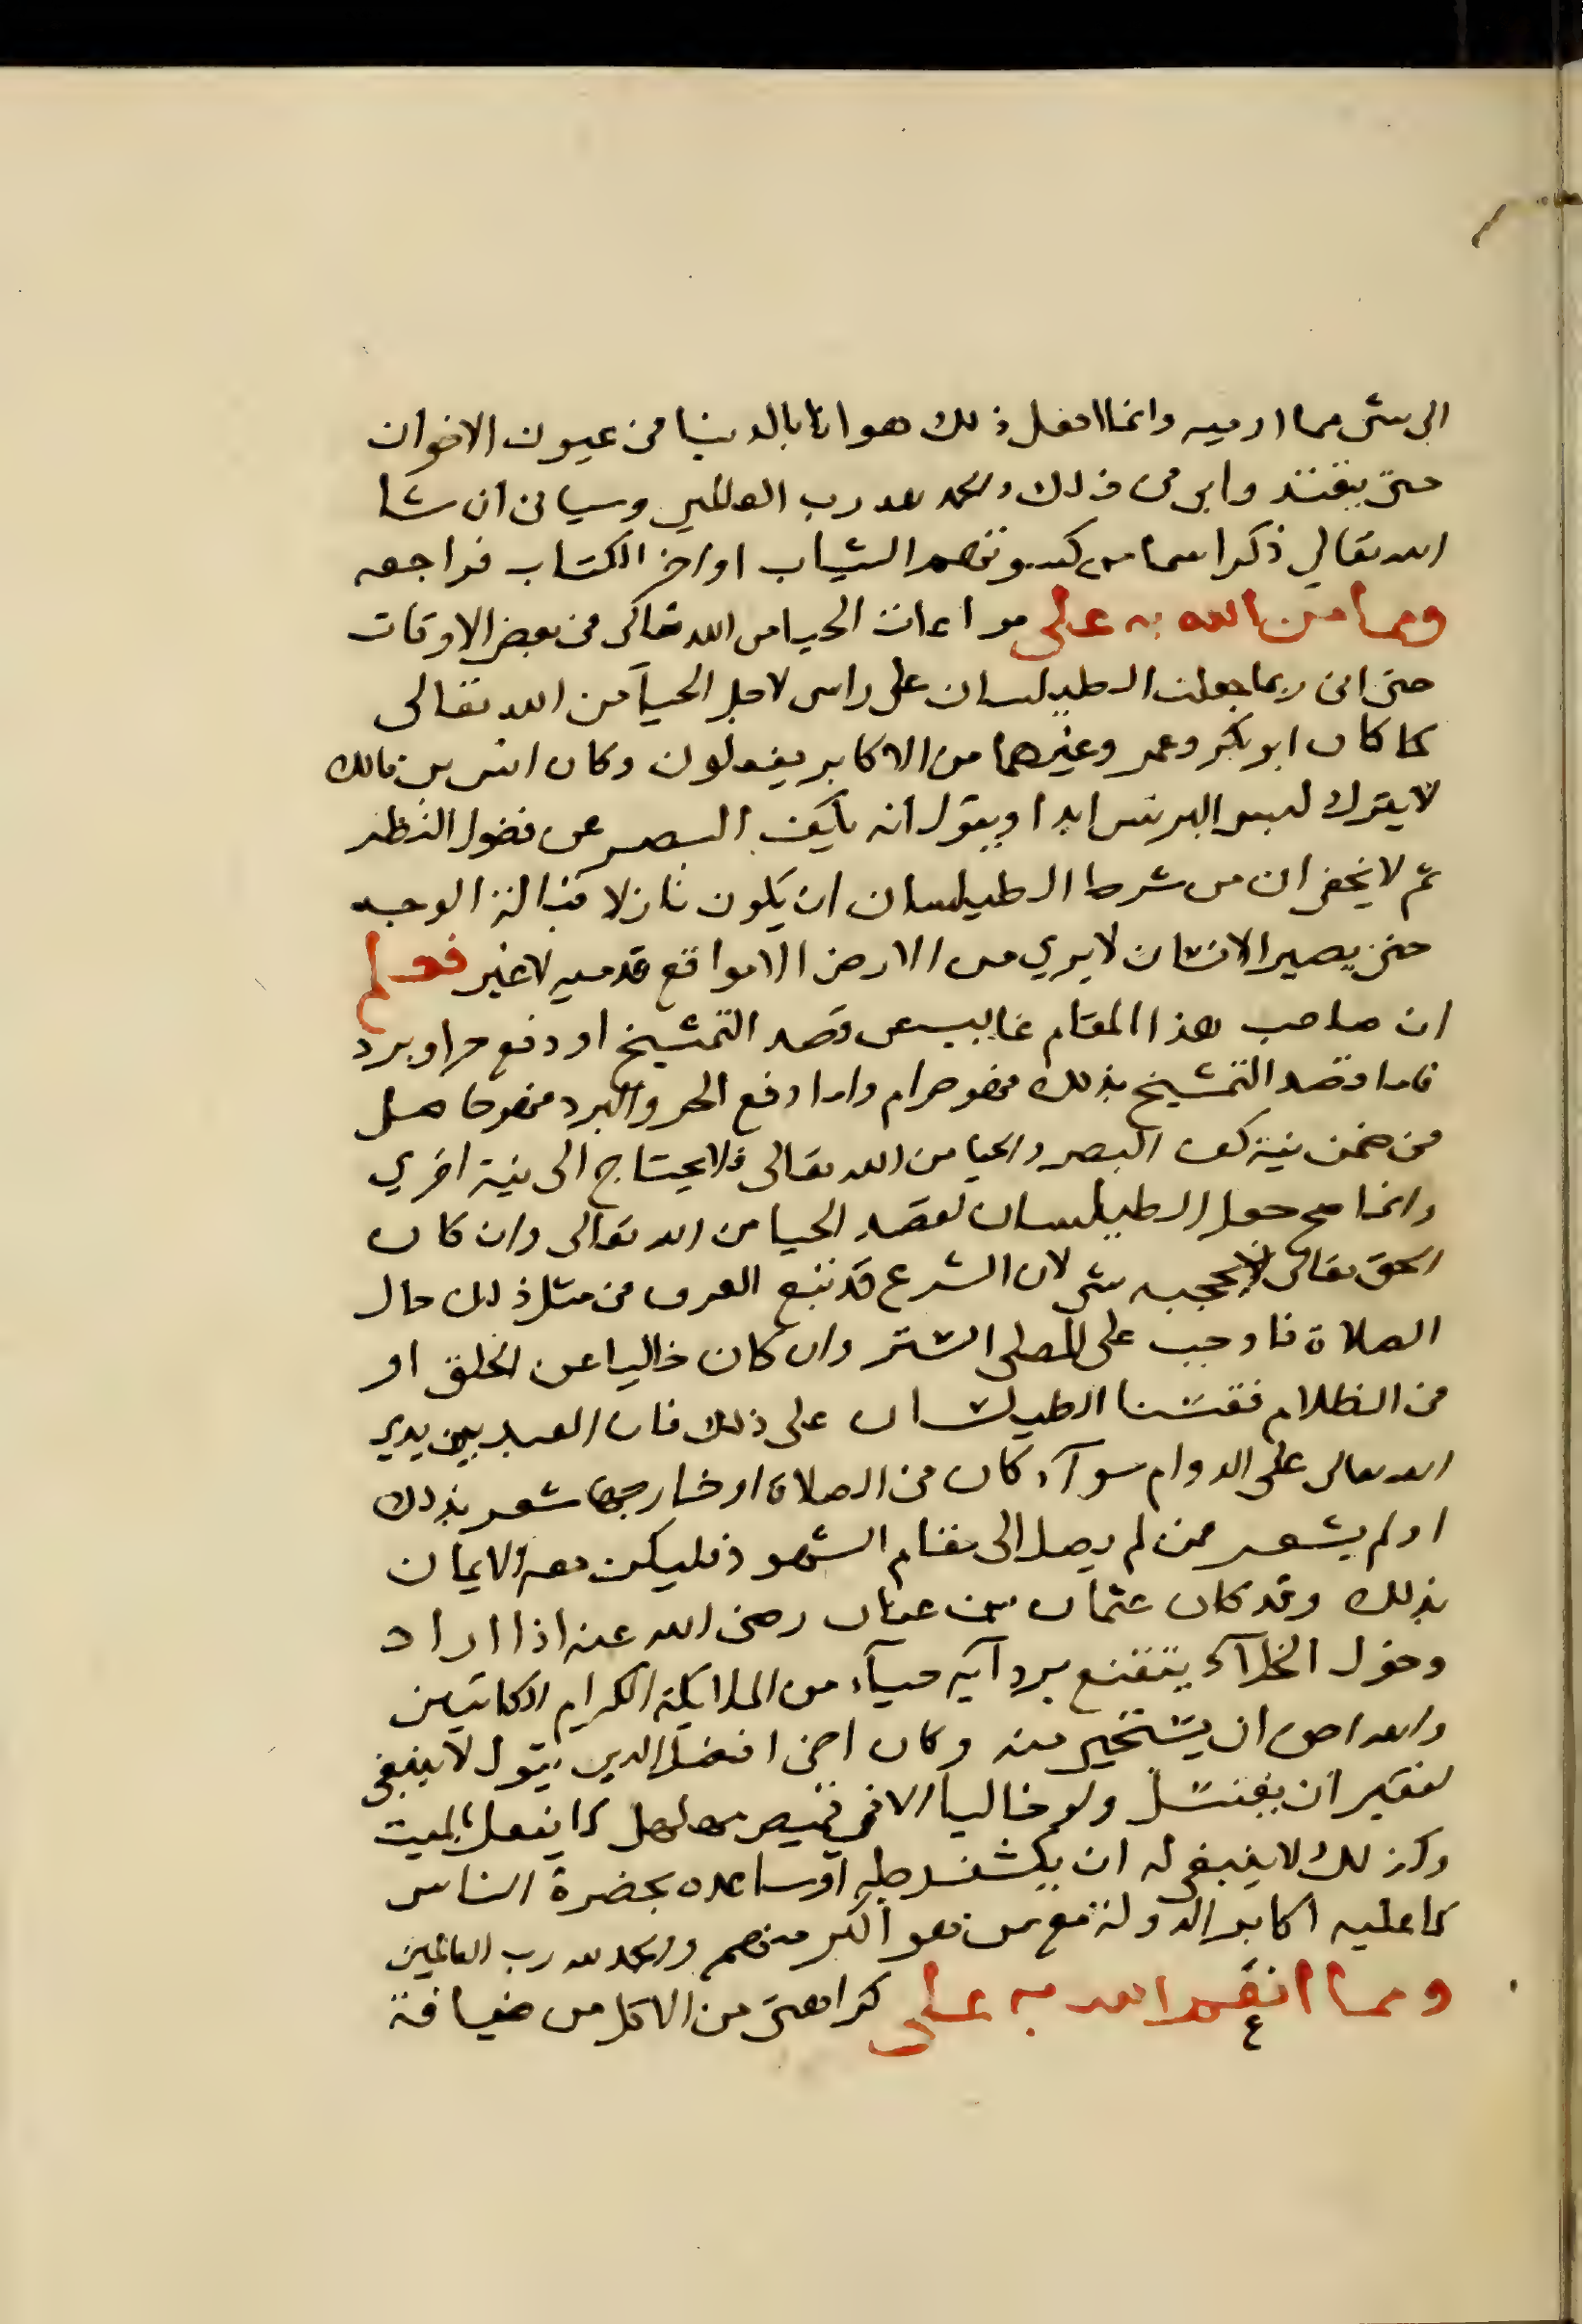 الى شى مما ارميه وانما افعل ذلك هوانا بالدنيا فى عيون الاخوان
حتى يقتدوا بى فى ذلك والحمد لله رب العالمين وسياتى ان شا
الله تعالى ذكر اسما من كسوتهم الثياب اواخر الكتاب فراجعه
ومما من الله به على مراعات الحيا من الله تعالى فى بعض الاوقات
حتى انى ربما جعلت الطيلسان على راسى لاجل الحيآ من الله تعالى
كما كان ابو بكر وعمر وغيرهما من الاكابر يفعلون وكان انس بن مالك
لا يترك لبس البرنس ابدا ويقول انه يكف البصر عن فضول النظر
ثم لا يخفى ان من شرط الطيلسان ان يكون نازلا قبالة الوجه
حتى يصير الانسان لا يري من الارض الا مواقع قدميه لا غير فعلم
ان صاحب هذا المقام غايب عن قصد التمشيخ او دفع حر او برد
فاما قصد التمشيخ بذلك فهو حرام واما دفع الحر والبرد فهو حاصل
فى ضمن نية كف البصر والحيا من الله تعالى فلا يحتاج الى نية اخري
وانما صح جعل الطيلسان لقصد الحيا من الله تعالى وان كان
الحق تعالى لا يحجبه شى لان الشرع قد تبع العرف فى مثل ذلك حال
الصلاة فاوجب على المصلى الستر وان كان خاليا عن الخلق او
فى الظلام فقسنا الطيلسان على ذلك فان العبد بين يدي
الله تعالى على الدوام سوآء كان فى الصلاة او خارجها شعر بذلك
او لم يشعر فمن لم يصل الى مقام الشهود فليكن معه الايمان
بذلك وقد كان عثمان بن عفان رضى الله عنه اذا اراد
دخول الخلآء يتقنع بردآيه حيآء من الملايكة الكرام الكاتبين
والله احق ان يستحيى منه وكان اخى افضل الدين يقول لا ينبغى
لفقير ان يغتسل ولو خاليا الا فى قميص مهلهل كما يفعل بالميت
وكذلك لا ينبغى له ان يكشف رجله او ساعده بحضرة الناس
كما عليه اكابر الدولة مع من هو اكبر منهم والحمد لله رب العالمين
ومما انعم الله به على كراهتى من الاكل من ضيافة